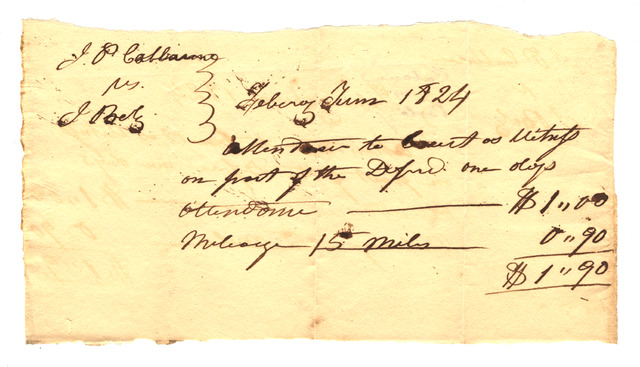 J. P.
vs
J. Betz
Febry Term 1824
Attendance to Court as Witness
on part of the Defend. one days
attendance $1"00
Mileage 15 Miles 0"90
$1"90